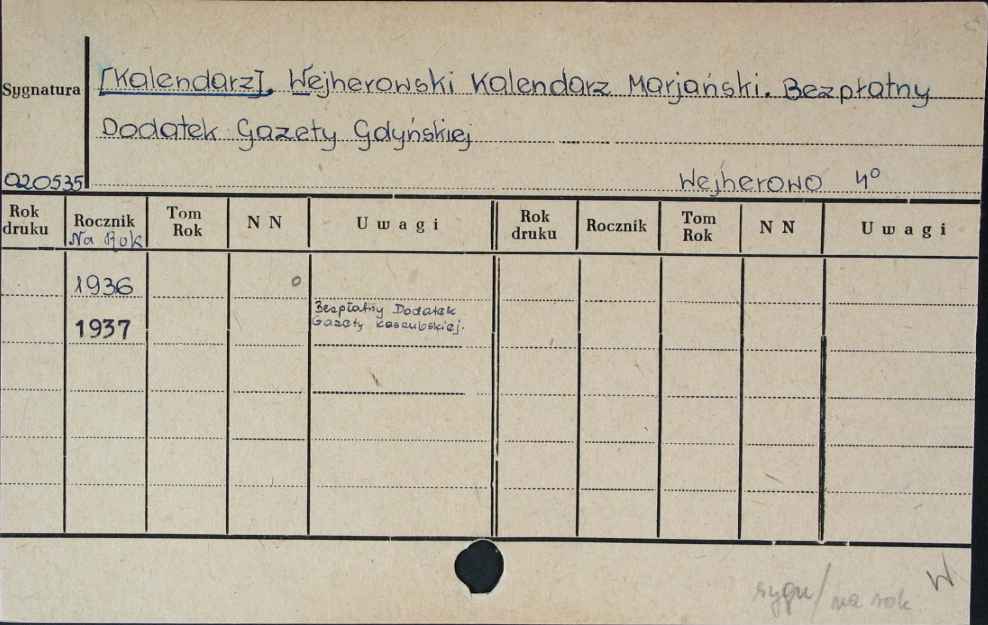 [Kalendarz]. Wejherowski Kalendarz Marjański. Bezpłatny
Sygnatura
Dodatek Gazety Gdyńskiej
020535
Wejherowo 4°
Rok druku
Rocznik
Na Rok
Tom Rok
N N
Uwagi
Rok druku
Rocznik
Tom Rok
N N
Uwagi
1936
1937
Bezpłatny Dodatek
Gazety Kaszubskiej.
sygn/na rok
W